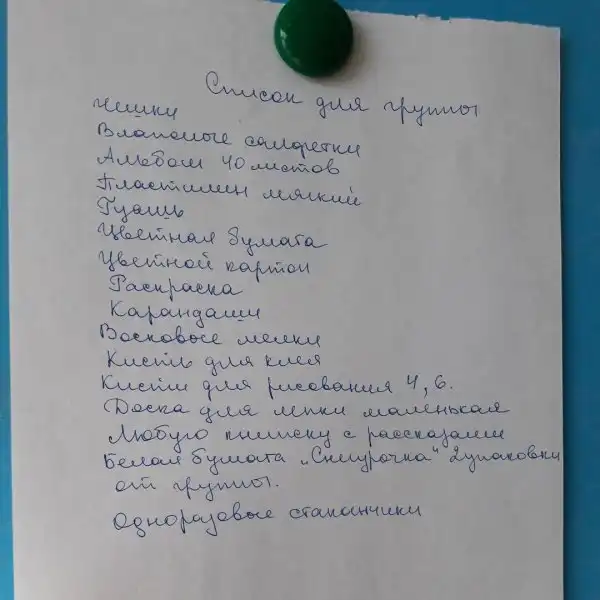 Список для группы
чешки
Влажные салфетки
Альбом 40 листов
Пластилин мягкий
Гуашь
Цветная бумага
Цветной картон
Раскраска
Карандаши
Восковые мелки
Кисть для клея
Кисти для рисования 4, 6.
Доска для лепки маленькая
Любую книжку с рассказами
Белая бумага „Снегурочка" 2 упаковки
от группы.
Одноразовые стаканчики